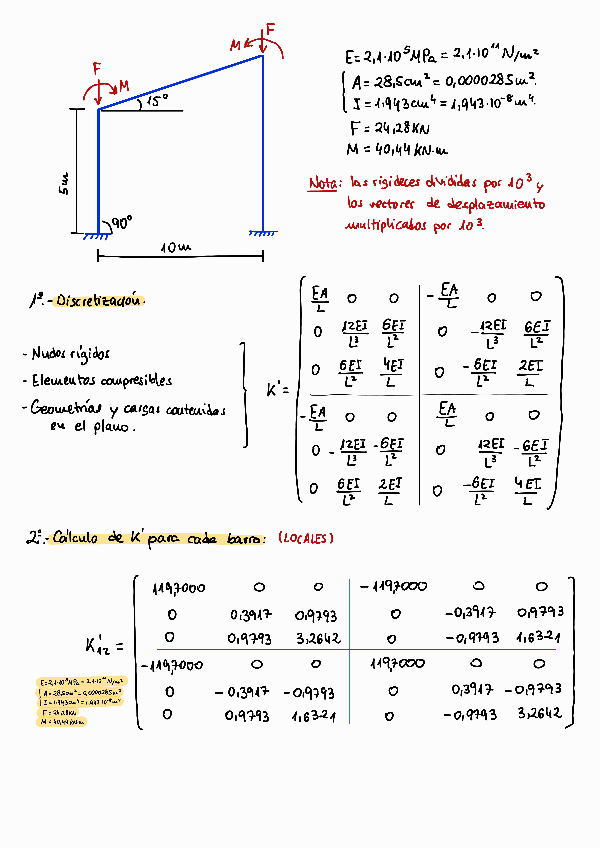 F
M
F
M
15°
5m
90°
10m
E = 2,1·10⁵ MPa = 2,1·10¹¹ N/m²
A = 28,5cm² = 0,0000285m².
I = 1.943cm⁴ = 1,943·10⁻⁸ m⁴.
F = 24,28KN
M = 40,44 KN·m
Nota: las rigideces divididas por 10³ y
los vectores de desplazamiento
multiplicados por 10³.
1º.- Discretización.
- Nudos rígidos
- Elementos compresibles
- Geometrías y cargas contenidas
en el plano.
K' =
EA/L 0 0 -EA/L 0 0
0 12EI/L³ 6EI/L² 0 -12EI/L³ 6EI/L²
0 6EI/L² 4EI/L 0 -6EI/L² 2EI/L
-EA/L 0 0 EA/L 0 0
0 -12EI/L³ -6EI/L² 0 12EI/L³ -6EI/L²
0 6EI/L² 2EI/L 0 -6EI/L² 4EI/L
2º.- Cálculo de K' para cada barra: (LOCALES)
K'₁₂ =
119,7000 0 0 -119,7000 0 0
0 0,3917 0,9793 0 -0,3917 0,9793
0 0,9793 3,2642 0 -0,9793 1,6321
-119,7000 0 0 119,7000 0 0
0 -0,3917 -0,9793 0 0,3917 -0,9793
0 0,9793 1,6321 0 -0,9793 3,2642
E = 2,1·10⁵ MPa = 2,1·10¹¹ N/m²
A = 28,5cm² = 0,0000285m²
I = 1.943cm⁴ = 1,943·10⁻⁸ m⁴
F = 24,28KN
M = 40,44 KN·m